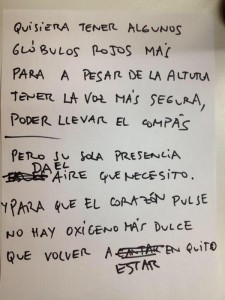 QUISIERA TENER ALGUNOS
GLÓBULOS ROJOS MÁS
PARA A PESAR DE LA ALTURA
TENER LA VOZ MÁS SEGURA,
PODER LLEVAR EL COMPÁS
PERO SU SOLA PRESENCIA
DA EL AIRE QUE NECESITO.
Y PARA QUE EL CORAZÓN PULSE
NO HAY OXÍGENO MÁS DULCE
QUE VOLVER A CANTAR EN QUITO
ESTAR